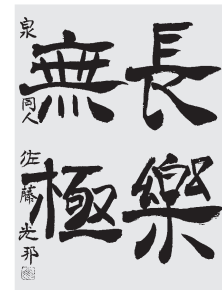 長樂
無極
泉 同人 佐藤 光邦